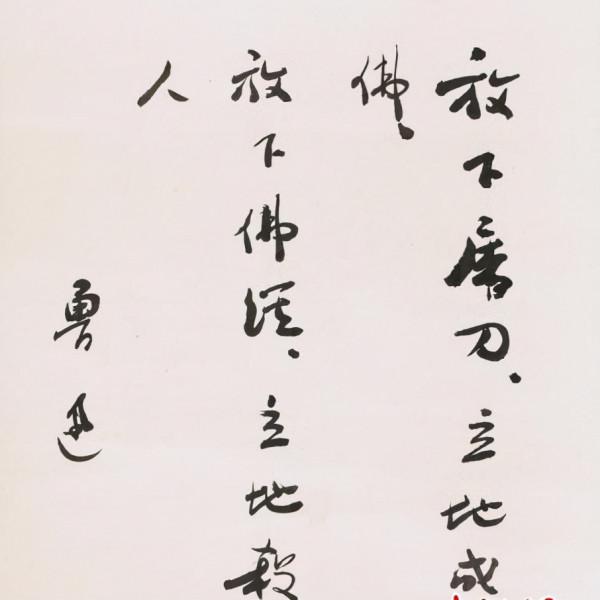 放下屠刀、立地成
佛、
放下佛经、立地杀
人
鲁迅